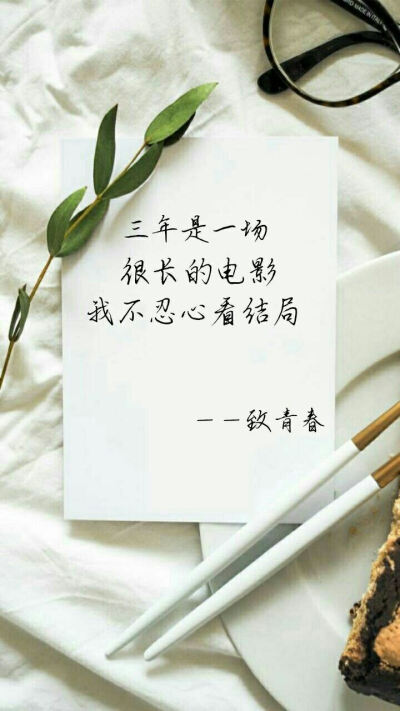 三年是一场
很长的电影
我不忍心看结局
——致青春